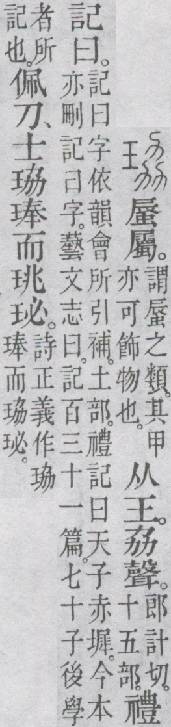 珕 蜃屬。謂蜃之類。其甲亦可飾物也。从王。劦聲。郎計切。十五部。禮
記曰。記曰字依韻會所引補。土部。禮記曰天子赤墀。今本亦刪記曰字。藝文志曰。記百三十一篇。七十子後學
者所記也。佩刀、士珕琫而珧珌。詩正義作珕琫而珕珌。